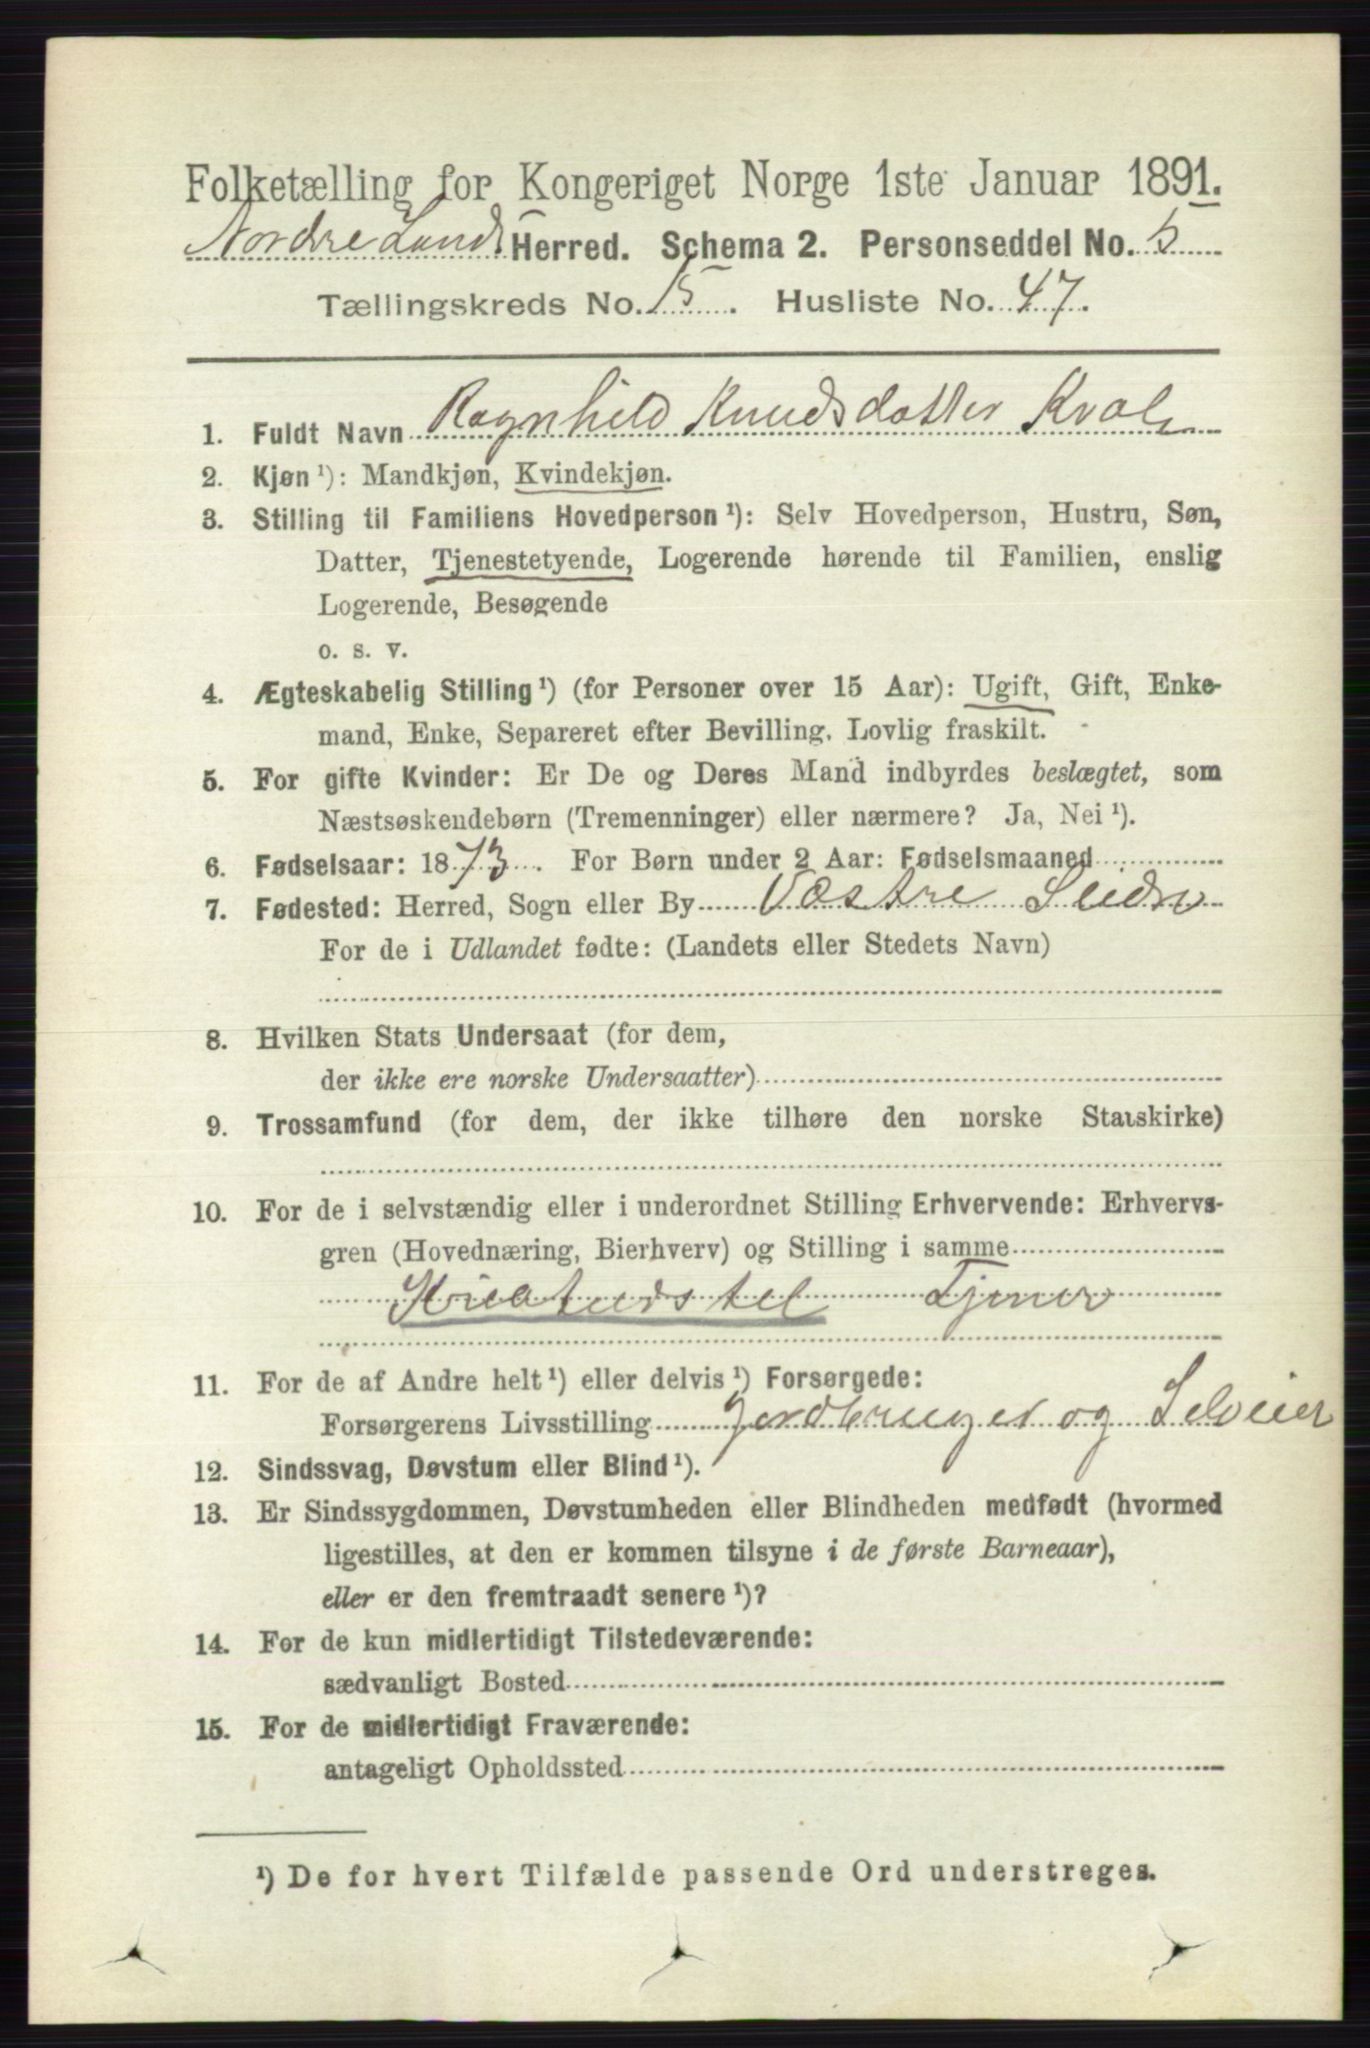 Folketælling for Kongeriget Norge 1ste Januar 1891.
Nordre Lands Herred. Schema 2. Personseddel No. 5
Tællingskreds No. 15. Husliste No. 47.
1. Fuldt Navn Ragnhild Knudsdatter Kvale
2. Kjøn ¹): Mandkjøn, Kvindekjøn.
3. Stilling til Familiens Hovedperson ¹): Selv Hovedperson, Hustru, Søn,
Datter, Tjenestetyende, Logerende hørende til Familien, enslig
Logerende, Besøgende
o. s. v.
4. Ægteskabelig Stilling ¹) (for Personer over 15 Aar): Ugift, Gift, Enke-
mand, Enke, Separeret efter Bevilling. Lovlig fraskilt.
5. For gifte Kvinder: Er De og Deres Mand indbyrdes beslægtet, som
Næstsøskendebørn (Tremenninger) eller nærmere? Ja, Nei ¹).
6. Fødselsaar: 1873. For Børn under 2 Aar: Fødselsmaaned
7. Fødested: Herred, Sogn eller By Væstre Slidre
For de i Udlandet fødte: (Landets eller Stedets Navn)
8. Hvilken Stats Undersaat (for dem,
der ikke ere norske Undersaatter)
9. Trossamfund (for dem, der ikke tilhøre den norske Statskirke)
10. For de i selvstændig eller i underordnet Stilling Erhvervende: Erhvervs-
gren (Hovednæring, Bierhverv) og Stilling i samme
Kreaturstel Tjener
11. For de af Andre helt ¹) eller delvis ¹) Forsørgede:
Forsørgerens Livsstilling Jordbruger og Selveier
12. Sindssvag, Døvstum eller Blind ¹).
13. Er Sindssygdommen, Døvstumheden eller Blindheden medfødt (hvormed
ligestilles, at den er kommen tilsyne i de første Barneaar),
eller er den fremtraadt senere ¹)?
14. For de kun midlertidigt Tilstedeværende:
sædvanligt Bosted
15. For de midlertidigt Fraværende:
antageligt Opholdssted
¹) De for hvert Tilfælde passende Ord understreges.